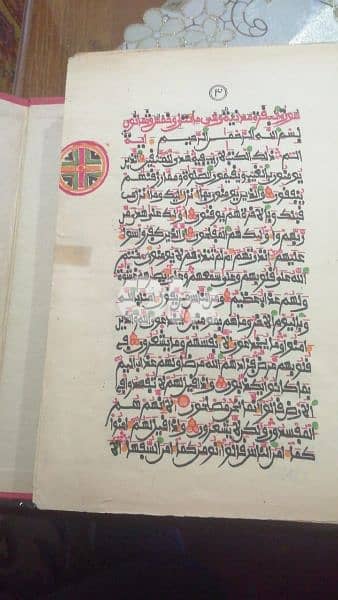 ٣
سورة البقرة مدنية وهي مائتين وخمس وثمانون
بسم الله الرحمن الرحيم ءاية
الم ذلك الكتب لا ريب فيه هدى للمتقين الذين
يومنون بالغيب ويقيمون الصلوة ومما رزقنهم
ينفقون والذين يومنون بما أنزل إليك وما أنزل من
قبلك وبالاخرة هم يوقنون أوليك على هدى من
ربهم وأوليك هم المفلحون إن الذين كفروا سواء
عليهم ءانذرتهم أم لم تنذرهم لا يومنون ختم
الله على قلوبهم وعلى سمعهم وعلى أبصرهم غشوة
ولهم عذاب عظيم ومن الناس من يقول ءامنا بالله
وباليوم الاخر وما هم بمومنين يخدعون الله والذين
ءامنوا وما يخدعون إلا أنفسهم وما يشعرون في
قلوبهم مرض فزادهم الله مرضا ولهم عذاب اليم
بما كانوا يكذبون وإذا قيل لهم لا تفسدوا في
الارض قالوا إنما نحن مصلحون ألا إنهم هم
المفسدون ولكن لا يشعرون وإذا قيل لهم ءامنوا
كما ءامن الناس قالوا أنومن كما ءامن السفهاء ألا